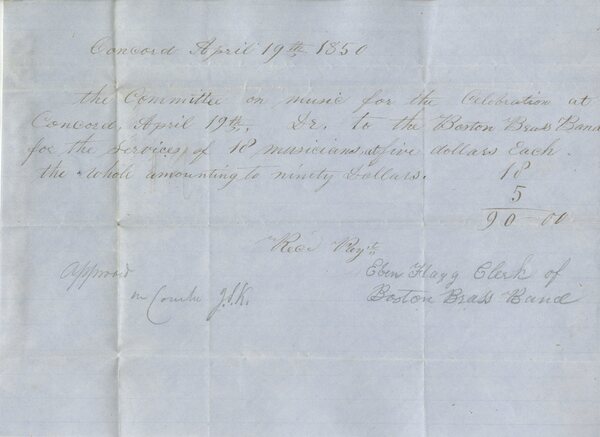 Concord April 19th 1850
the Committee on music for the Celebration at
Concord, April 19th, Dr. to the Boston Brass Band
for the services of 18 musicians at five dollars Each.
the whole amounting to ninety Dollars. 18
5
90-00
Recd Payt
Approved
Eben Flagg Clerk of
J.S.K. Boston Brass Band